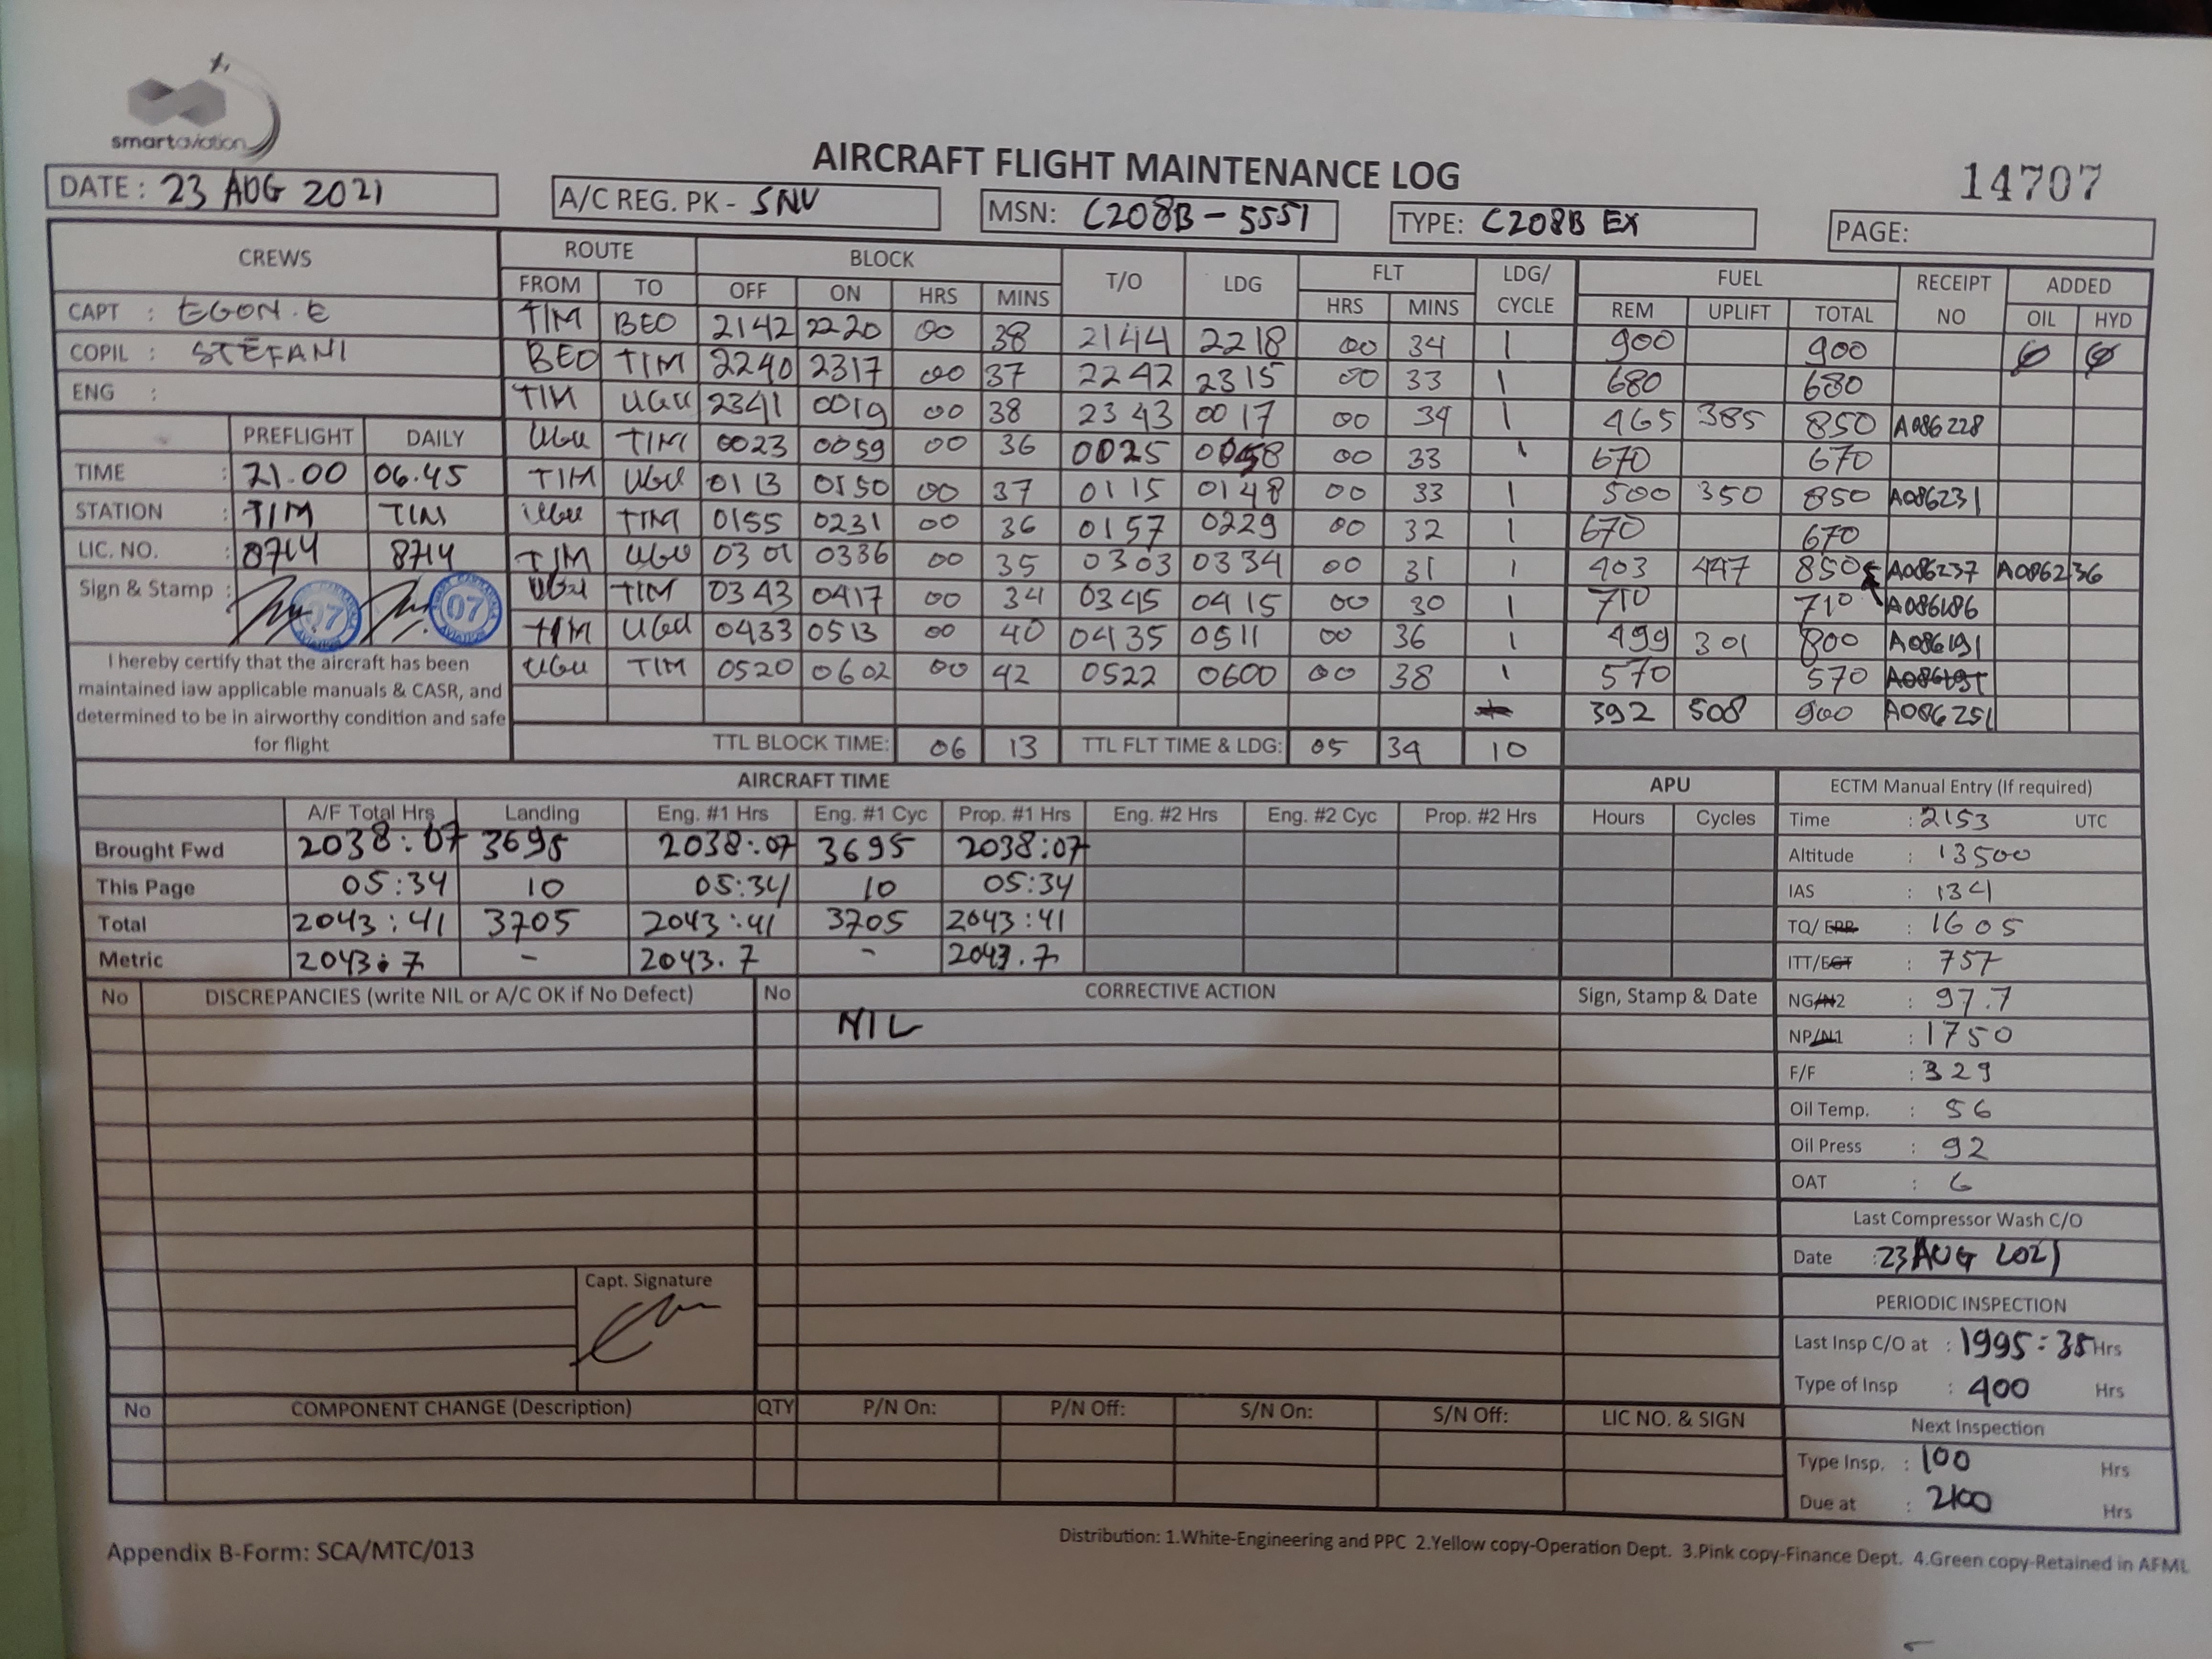 smartaviation
AIRCRAFT FLIGHT MAINTENANCE LOG
14707
DATE : 23 AUG 2021
A/C REG. PK - SNV
MSN: C208B - 5551
TYPE: C208B EX
PAGE:
CREWS ROUTE BLOCK T/O LDG FLT LDG/ CYCLE FUEL RECEIPT NO ADDED
FROM TO OFF ON HRS MINS HRS MINS REM UPLIFT TOTAL OIL HYD
CAPT : EGON.E
COPIL : STEFANI
ENG :
TIM BEO 2142 2220 00 38 2144 2218 00 34 1 900 900 0 0
BEO TIM 2240 2317 00 37 2242 2315 00 33 1 680 680
TIM UGU 2341 0019 00 38 2343 0017 00 34 1 465 385 850 A086228
UGU TIM 0023 0059 00 36 0025 0058 00 33 1 670 670
TIM UGU 0113 0150 00 37 0115 0148 00 33 1 500 350 850 A086231
UGU TIM 0155 0231 00 36 0157 0229 00 32 1 670 670
TIM UGU 0301 0336 00 35 0303 0334 00 31 1 403 447 850 A086237 A086236
UGU TIM 0343 0417 00 34 0345 0415 00 30 1 710 710 A086186
TIM UGU 0433 0513 00 40 0435 0511 00 36 1 499 301 800 A086191
UGU TIM 0520 0602 00 42 0522 0600 00 38 1 570 570
392 508 900 A086251
TTL BLOCK TIME: 06 13 TTL FLT TIME & LDG: 05 34 10
PREFLIGHT DAILY
TIME : 21.00 06.45
STATION : TIM TIM
LIC. NO. : 8714 8714
Sign & Stamp :
07 07
AVIATION AVIATION
I hereby certify that the aircraft has been
maintained iaw applicable manuals & CASR, and
determined to be in airworthy condition and safe
for flight
AIRCRAFT TIME APU
A/F Total Hrs Landing Eng. #1 Hrs Eng. #1 Cyc Prop. #1 Hrs Eng. #2 Hrs Eng. #2 Cyc Prop. #2 Hrs Hours Cycles
Brought Fwd 2038:07 3695 2038:07 3695 2038:07
This Page 05:34 10 05:34 10 05:34
Total 2043:41 3705 2043:41 3705 2043:41
Metric 2043.7 - 2043.7 - 2043.7
ECTM Manual Entry (If required)
Time : 2153 UTC
Altitude : 13500
IAS : 134
TQ/ EPR : 1605
ITT/EGT : 757
NG/N2 : 97.7
NP/N1 : 1750
F/F : 329
Oil Temp. : 56
Oil Press : 92
OAT : 6
Last Compressor Wash C/O
Date : 23 AUG 2021
PERIODIC INSPECTION
Last Insp C/O at : 1995:35 Hrs
Type of Insp : 400 Hrs
Next Inspection
Type Insp. : 100 Hrs
Due at : 2100 Hrs
No DISCREPANCIES (write NIL or A/C OK if No Defect) No CORRECTIVE ACTION Sign, Stamp & Date
NIL
Capt. Signature
No COMPONENT CHANGE (Description) QTY P/N On: P/N Off: S/N On: S/N Off: LIC NO. & SIGN
Appendix B-Form: SCA/MTC/013
Distribution: 1.White-Engineering and PPC 2.Yellow copy-Operation Dept. 3.Pink copy-Finance Dept. 4.Green copy-Retained in AFML